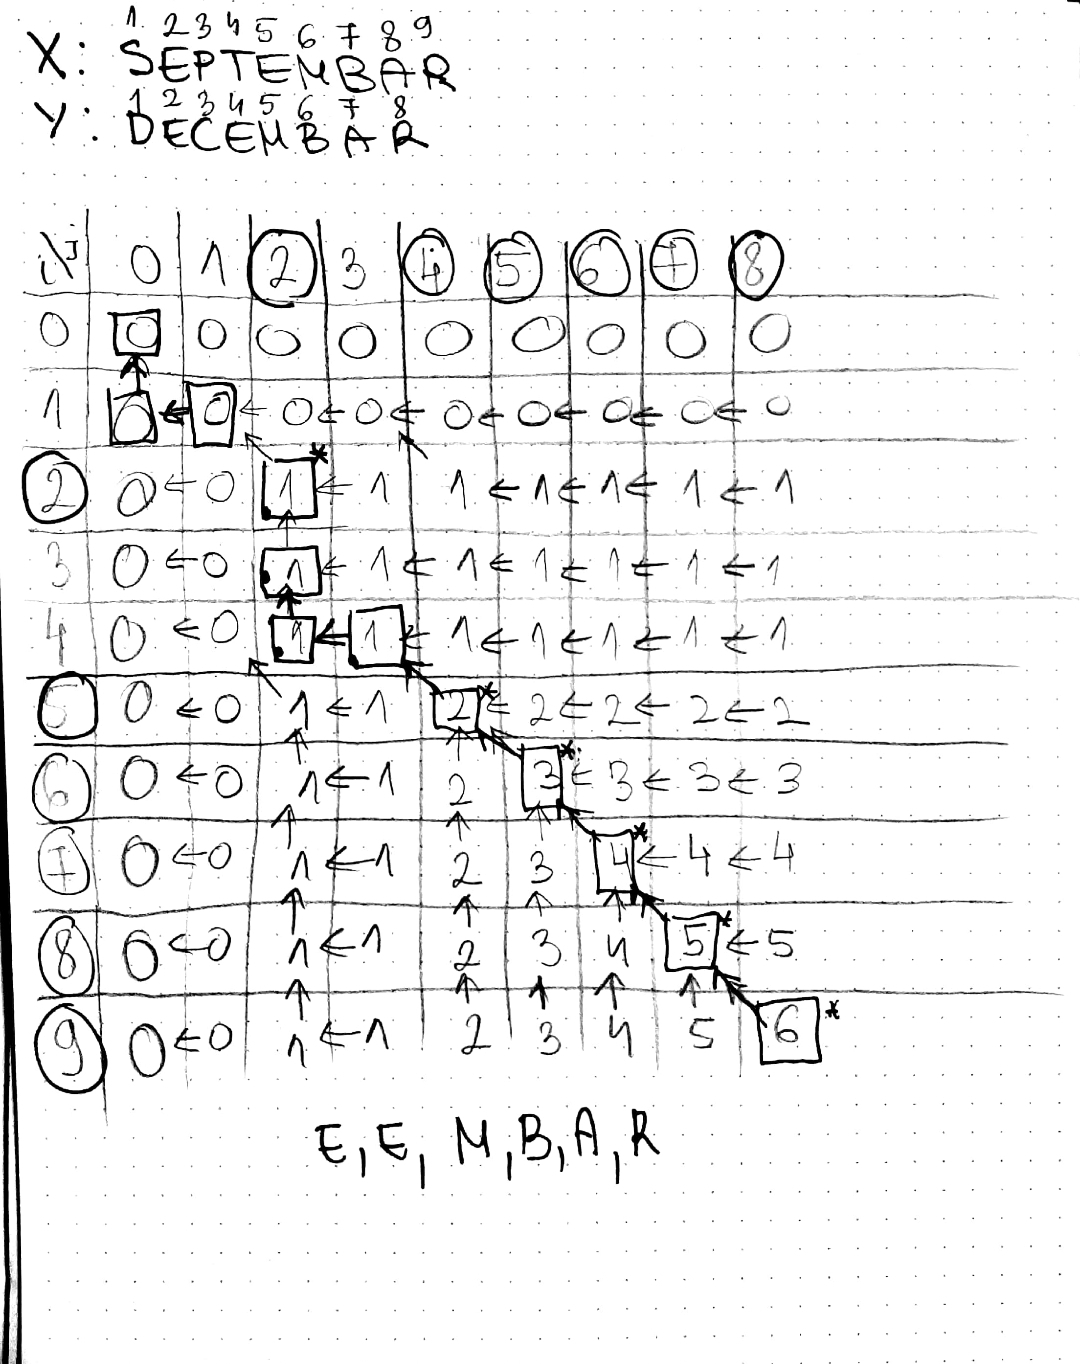 1 2 3 4 5 6 7 8 9
X: SEPTEMBAR
1 2 3 4 5 6 7 8
Y: DECEMBAR
i\j 0 1 2 3 4 5 6 7 8
0 0 0 0 0 0 0 0 0 0
1 0 ← 0 ← 0 ← 0 ← 0 ← 0 ← 0 ← 0 ← 0
2 0 ← 0 1* ← 1 1 ← 1 ← 1 ← 1 ← 1
3 0 ← 0 1 ← 1 ← 1 ← 1 ← 1 ← 1 ← 1
4 0 ← 0 1 ← 1 ← 1 ← 1 ← 1 ← 1 ← 1
5 0 ← 0 1 ← 1 2* ← 2 ← 2 ← 2 ← 2
6 0 ← 0 1 ← 1 2 3* ← 3 ← 3 ← 3
7 0 ← 0 1 ← 1 2 3 4* ← 4 ← 4
8 0 ← 0 1 ← 1 2 3 4 5* ← 5
9 0 ← 0 1 ← 1 2 3 4 5 6*
E, E, M, B, A, R